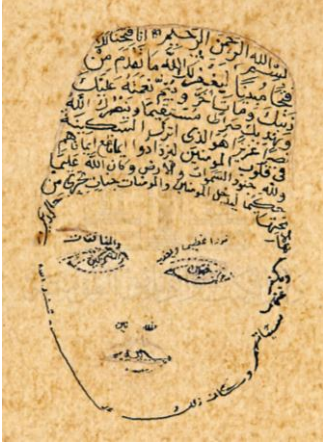 بسم الله الرحمن الرحيم انا فتحنا لك
فتحا مبينا ليغفر لك الله ما تقدم من
ذنبك وما تأخر ويتم نعمته عليك
ويهديك صراطا مستقيما وينصرك الله
نصرا عزيزا هو الذي انزل السكينة
في قلوب المؤمنين ليزدادوا ايمانا مع ايمانهم
ولله جنود السموات والارض وكان الله عليما
حكيما ليدخل المؤمنين والمؤمنات جنات تجري من
سيئاتهم
وكان ذلك
فوزا عظيما ويعذب
والمنافقات